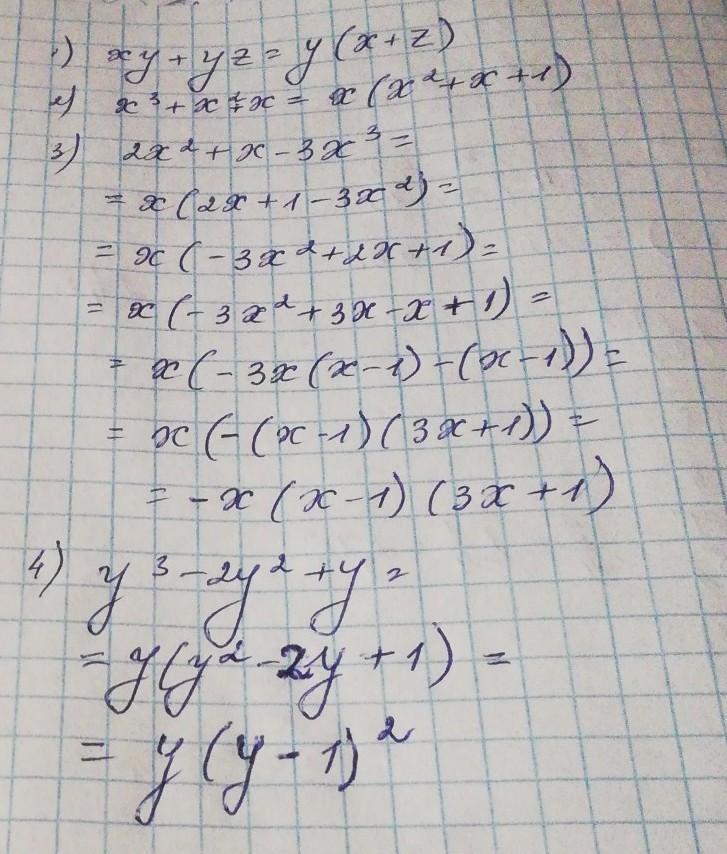 1) xy + yz = y(x+z)
2) x³ + x² + x = x(x² + x + 1)
3) 2x² + x - 3x³ =
= x(2x + 1 - 3x²) =
= x(-3x² + 2x + 1) =
= x(-3x² + 3x - x + 1) =
= x(-3x(x-1) - (x-1)) =
= x(-(x-1)(3x+1)) =
= -x(x-1)(3x+1)
4) y³ - 2y² + y =
= y(y² - 2y + 1) =
= y(y-1)²